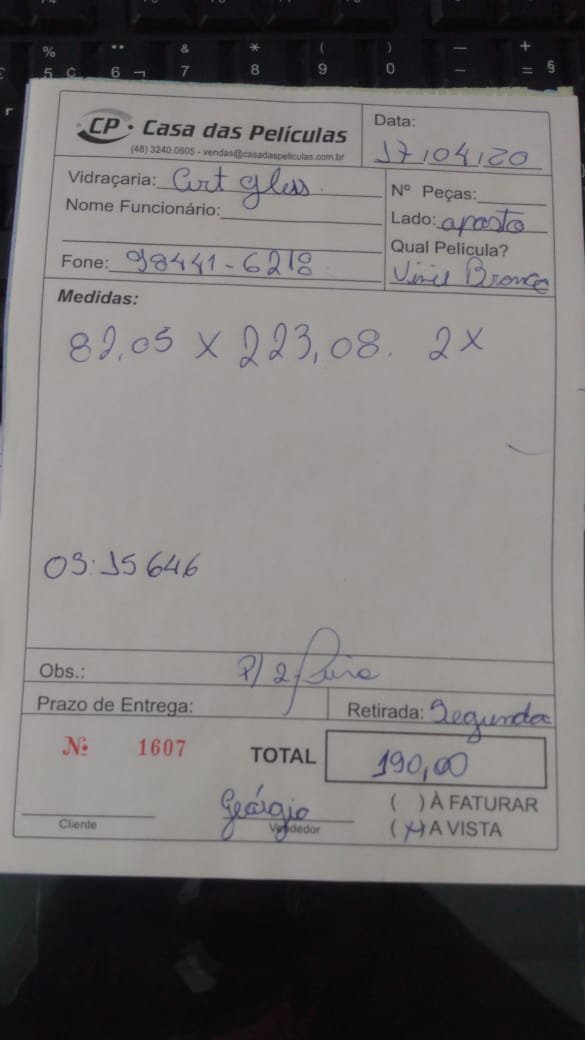 CP · Casa das Películas
(48) 3240.0605 - vendas@casadaspeliculas.com.br
Data:
17/04/20
Vidraçaria: Art Gless
Nome Funcionário:
Fone: 98441-6218
Nº Peças:
Lado: aposto
Qual Película?
Vinil Bronce
Medidas:
82,05 X 223,08. 2X
OS: 15646
Obs.: P/ 2ª feira
Prazo de Entrega:
Retirada: Segunda
Nº 1607
TOTAL 190,00
Cliente
Geórgio
Vendedor
( ) À FATURAR
(X) A VISTA
% 5 ¢
¨ 6 ¬
& 7
* 8
( 9
) 0
— –
+ = §